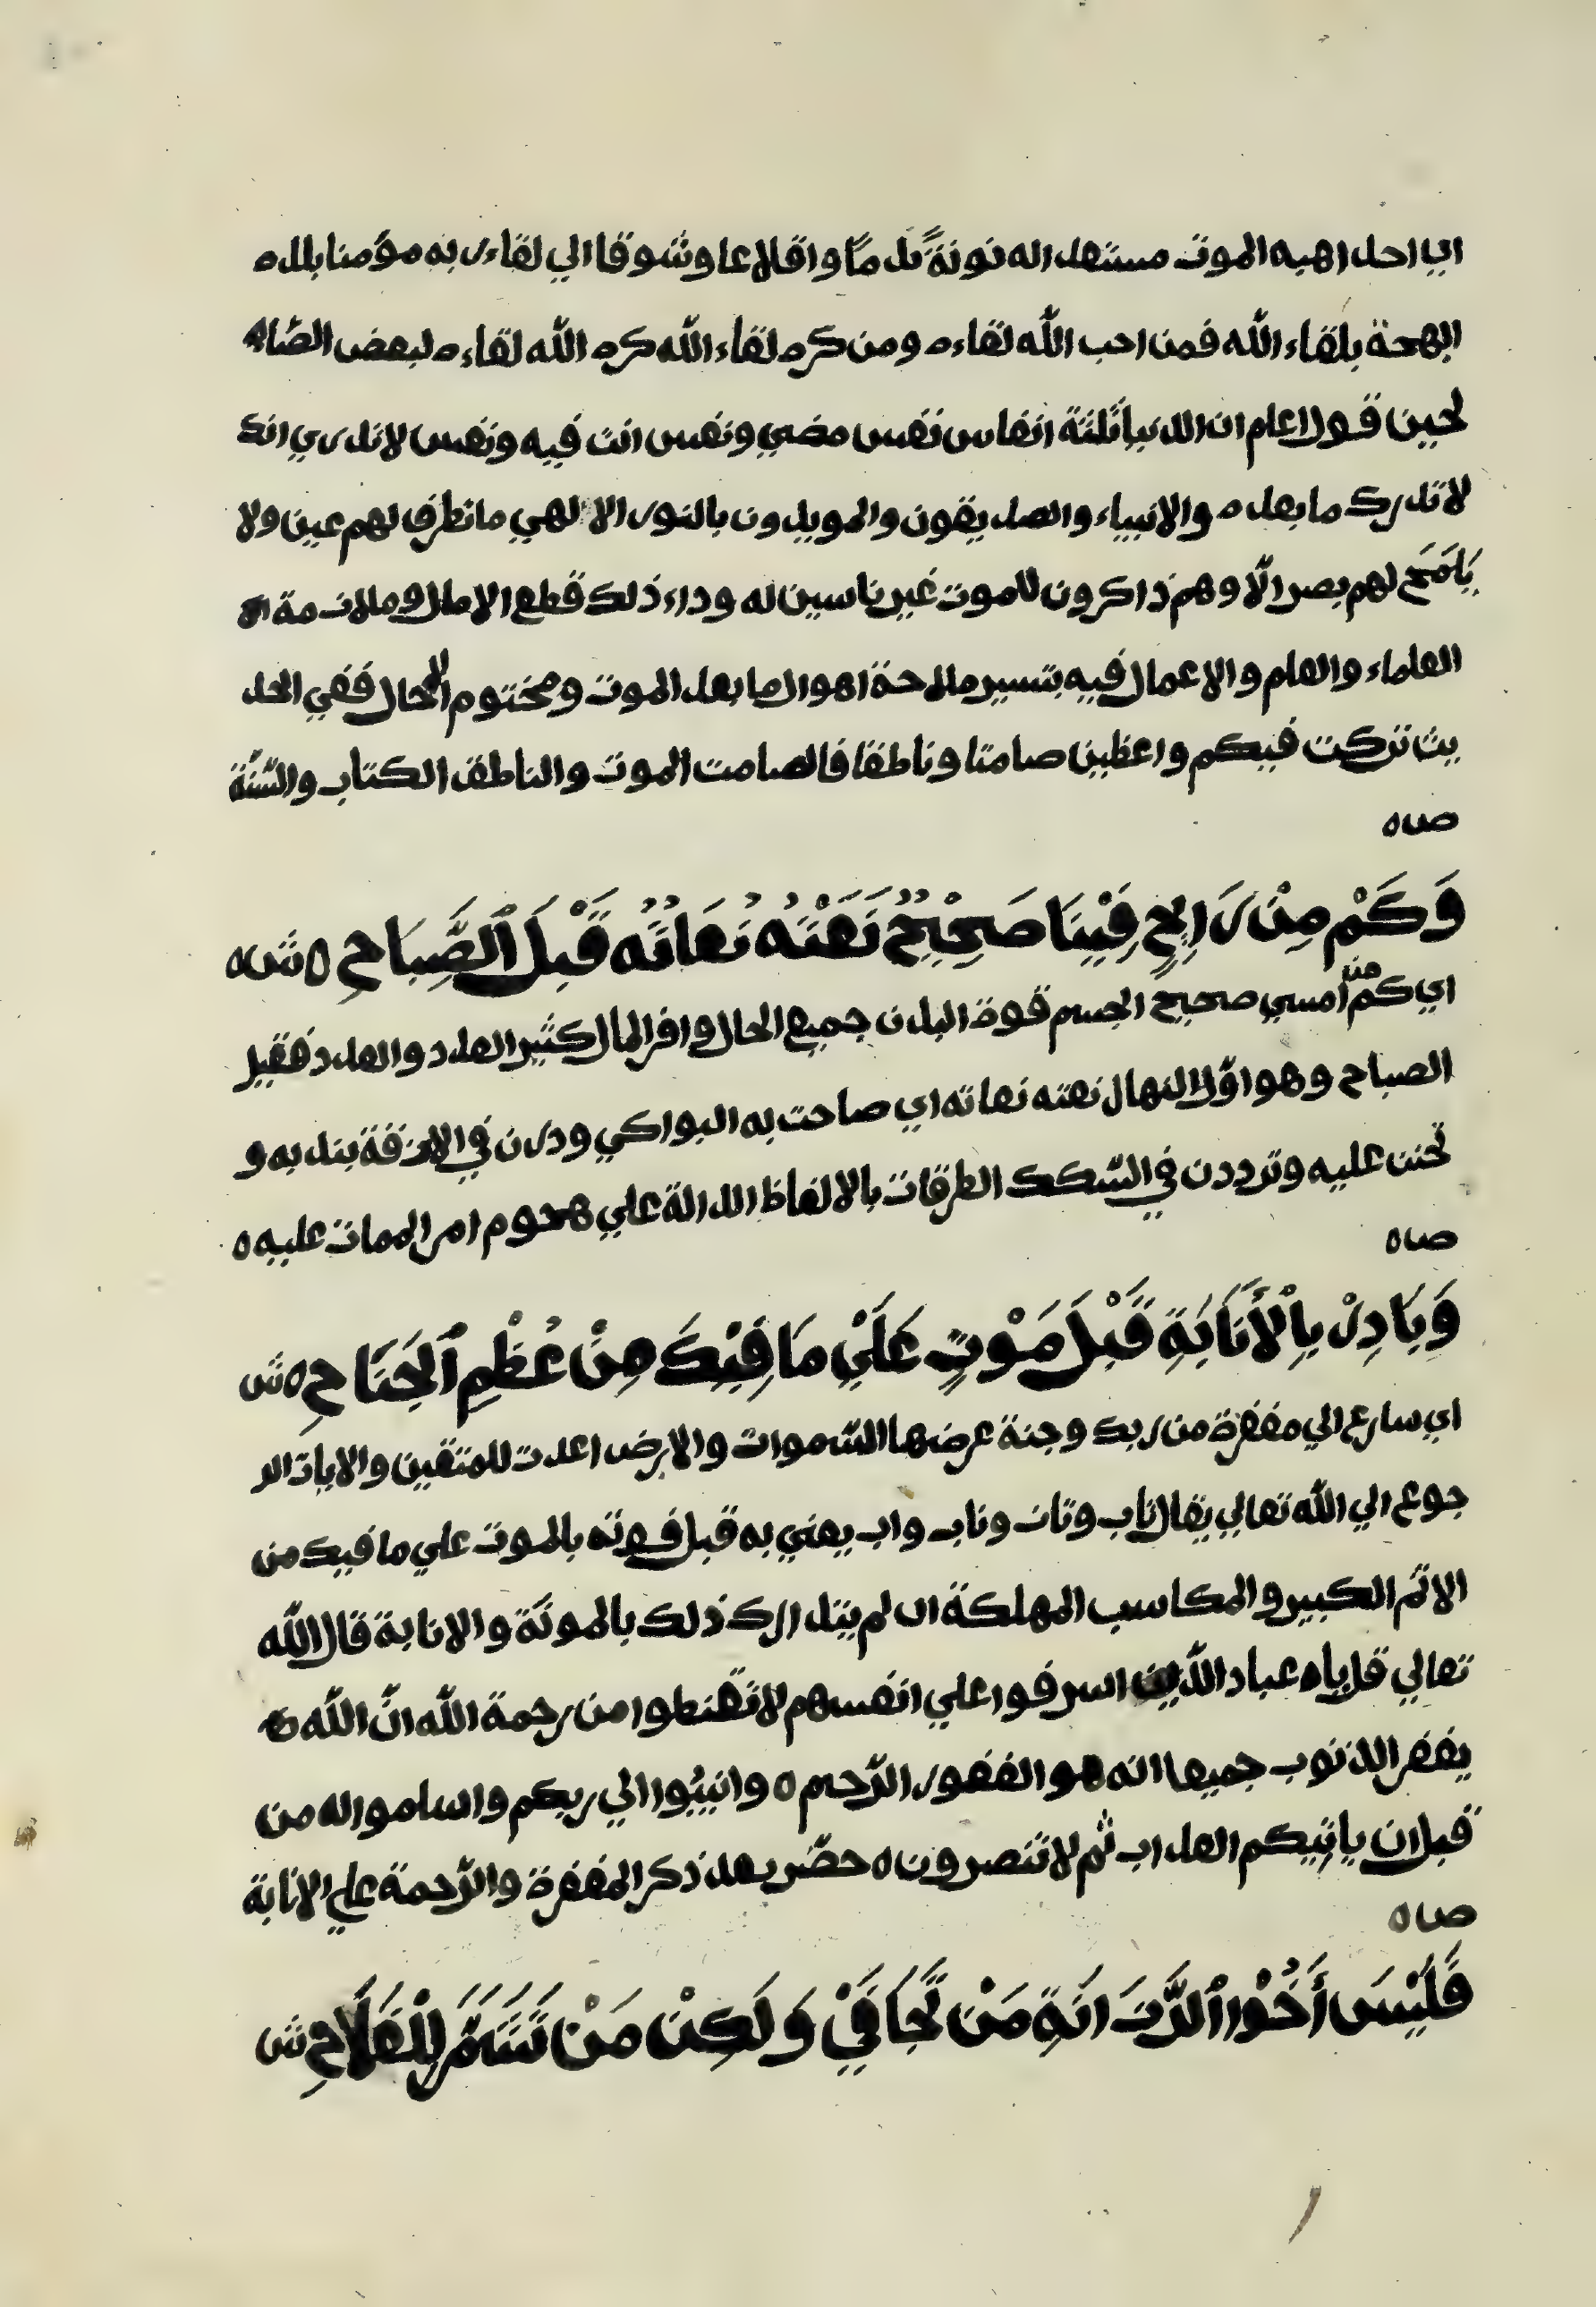 اي احد اهبه الموت مستعدا له توبةً ندمًا واقلاعا وشوقا الي لقاء ربه مومنا بلده
البهجة بلقاء الله فمن احب الله لقاءه ومن كره لقاء الله كره الله لقاءه لبعض الصّا
لحين قول اعلم ان الدنيا ثلثة انفاس نفس مضي ونفس انت فيه ونفس لا تدري انك
لا تدرك ما بعده والانبياء والصديقون والمويدون بالنور الالهي ما نطرف لهم عين ولا
يَلمَح لهم بصر الّا وهم ذاكرون للموت غير ناسين له وداء ذلك قطع الامل وملازمة
العلماء والعلم والاعمال فيه بتسير ملاحة اهوال ما بعد الموت ومختوم الحال ففي الحد
يث تركت فيكم واعظين صامتا وناطقا فالصامت الموت والناطق الكتاب والسّنّة
ص ٥
وَكَمْ مِنْ رَايِحٍ فِيْنَا صَحِيْحٌ نَعَتْهُ نُعَاتُه قَبْلَ ٱلصَّبَاحِ ٥ ش ٥
اي كم من امسي صحيح الجسم قوة البدن جميع الحال وافر المال كثير العدد والعدد فقيل
الصباح وهو اوّل النهار نعته نعاته اي صاحت به البواكي ودرن في الازقة بندبه و
تحنن عليه وترددن في السّكك الطرقات بالالفاظ الدالة علي هجوم امر الممات عليه ٥
ص ٥
وَبَادِرْ بِالْأَنَابَةِ قَبْلَ مَوْتٍ عَلَيْ مَا فِيْكَ مِنْ عُظْمِ ٱلجَنَاحِ ٥ ش
اي سارع الي مغفرة من ربك وجنة عرضها السّموات والارض اعدت للمتقين والايات الر
جوع الي الله تعالي يقال ناب وتاب وناب واب يعني به قبل فوته بالموت علي ما فيك من
الاثم الكبير والمكاسب المهلكة ان لم يتدارك ذلك بالموتة والانابة قال الله
تعالي قل ياه عباد الّذين اسرفوا علي انفسهم لا تقنطوا من رحمة الله انّ الله
يغفر الذنوب جميعا انه هو الغفور الرّحيم ٥ وانيبوا الي ربكم واسلموا له من
قبل ان ياتيكم العذاب ثم لا تنصرون ٥ حضّر بعد ذكر المغفرة والرّحمة علي الانابة
ص ٥
فَلَيْسَ أَخُوْا ٱلرَّزَانَةِ مَنْ تَجَافَيْ وَلَكِنْ مَنْ تَشَمَّرَ لِلْفَلَاحِ ش